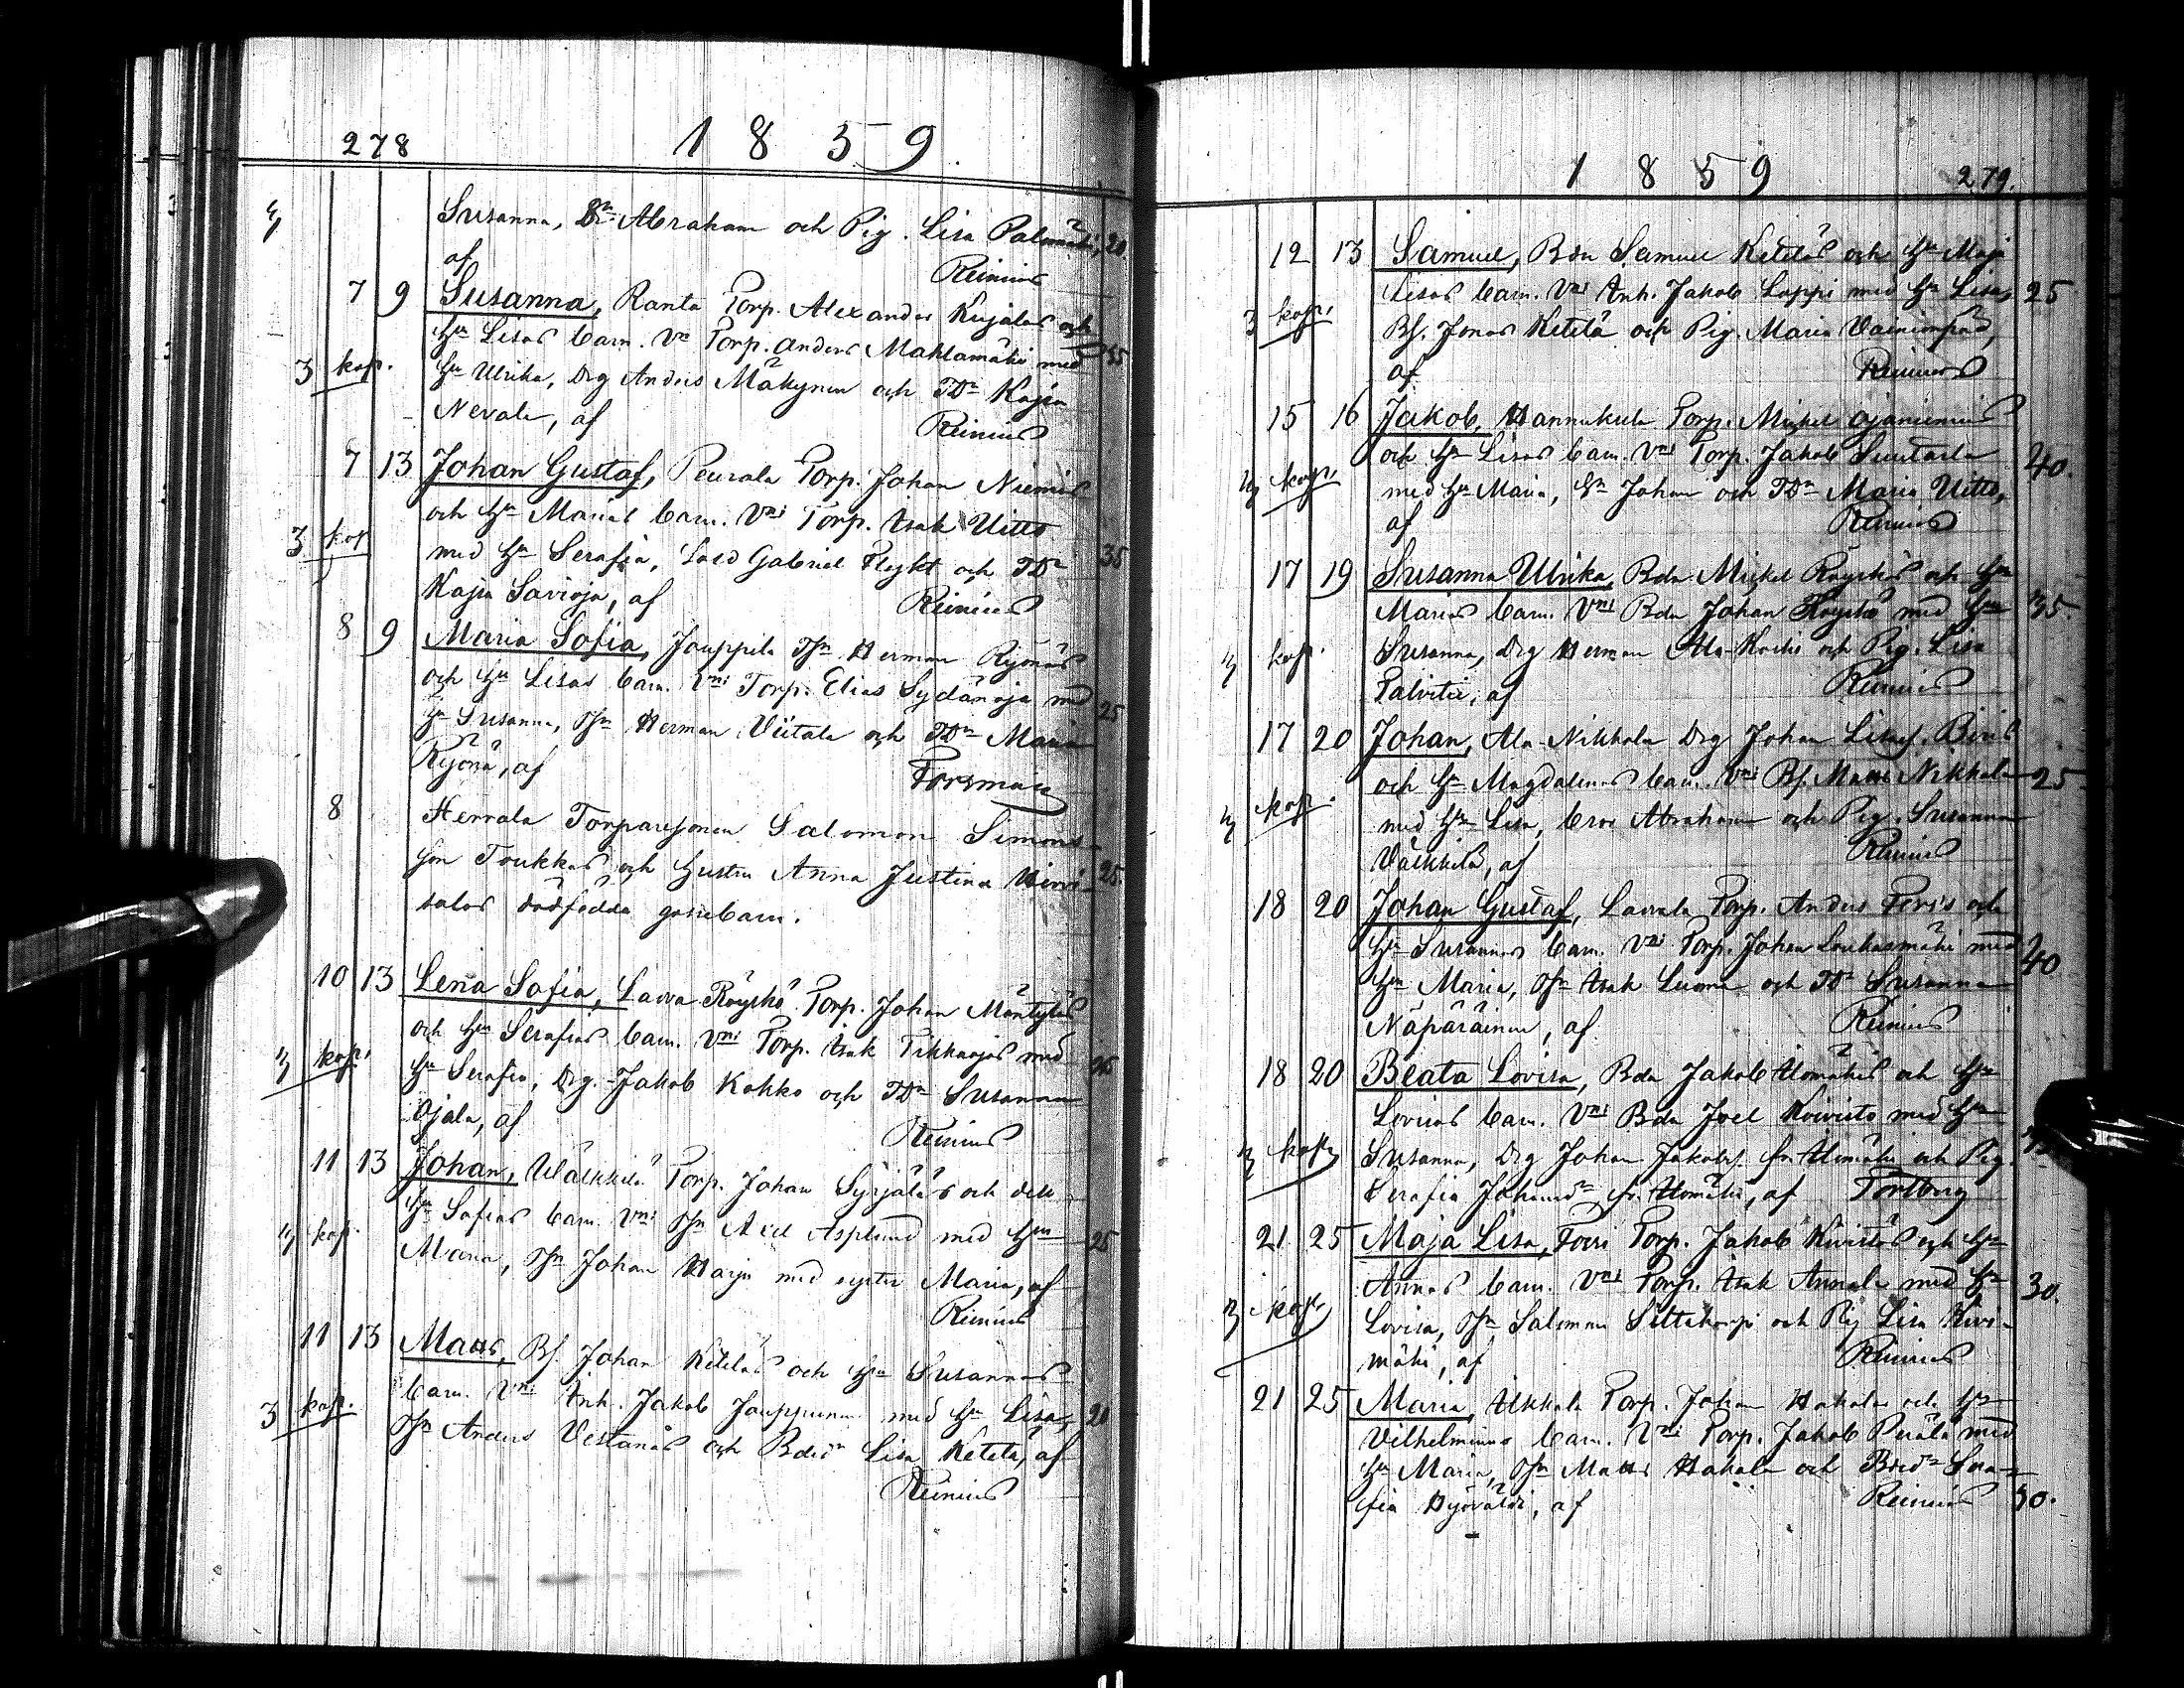 278 1859.
Susanna, Dr Abraham och Pig. Lisa Palomäki, 20.
af Reinius
7 9 Susanna, Ranta Torp. Alexander Kujalas och
Hu Lisas barn. Vn Torp. Anders Mahlamäki med 35
3 kop. Hu Ulrika, Drg Anders Mäkynen och TDr Kajsa
Nevala, af Reinius
7 13 Johan Gustaf, Peurala Torp. Johan Niemis
och Hu Marias barn. Vni Torp. Isak Uitto
3 kop med Hu Serafia, Sold Gabriel Flygt och TDr 35
Kajsa Savioja, af Reinius
8 9 Maria Sofia, Jouppila TSn Herman Ryönäs
och Hu Lisas barn. Vni Torp. Elias Sydänoja med 25
Hu Susanna, TSn Herman Viitala och TDr Maria
Ryönä, af Forsman
8 Herrala Torparesonen Salomon Simons-
son Toukkas och hustru Anna Justina 25.
talas dödfödda gossebarn.
10 13 Lena Sofia, Lavva Röyskö Torp. Johan Mäntyläs
och Hu Serafias barn. Vni Torp. Isak Pikkarjas med
kop. Hu Serafia, Drg. Jakob Kokko och TDr Susanna 25
Ojala, af Reinius
11 13 Johan, Wälkkilä Torp. Johan Syrjäläs och dess
Hu Sofias barn. Vni TSn Axel Asplund med Hu 25
kop. Maria, TSn Johan Harju med syster Maria, af
Reinius
11 13 Matts, BS. Johan Ketelas och Hu Susannas
barn. Vni Inh. Jakob Jouppinen med Hu Lisa, 20
3 kop. TSn Anders Vestanås och Bdedr Lisa Ketelä, af
Reinius
1859 279.
12 13 Samuel, Bdn Samuel Keteläs och Hu Maja
Lisas barn. Vni Inh. Jakob Loppi med Hu Lisa, 25
3 kop. BS. Jonas Ketelä och Pig. Maria Vainionpää,
af Reinius
15 16 Jakob, Hannuksela Torp. Michel Ojaniemis
och Hu Lisas barn. Vni Torp. Jakob Suutarla 40.
kop. med Hu Maria, Sn Johan och TDr Maria Uitto,
af Reinius
17 19 Susanna Ulrika, Bdn Michel Röyskös och Hu
Marias barn. Vni Bdn Johan Röyskö med Hu 35.
kop. Susanna, Drg Herman Ala-Koski och Pig. Lisa
Palvitie, af Reinius
17 20 Johan, Ala-Nikkola Drg Johan Lisas. Biris
och Hu Magdalenas barn. Vni BS. Matts Nikkola 25.
kop. med Hu Lisa, bror Abraham och Pig. Susanna
Välkkilä, af Reinius
18 20 Johan Gustaf, Laurala Torp. Anders Peris och
Hu Susannas barn. Vni Torp. Johan Loukasmäki med 40.
Hu Maria, TSn Isak Luoma och TDr Susanna
Näpäräinen, af Reinius
18 20 Beata Lovisa, Bdn Jakob Ulomäkis och Hu
Lovisas barn. Vni Bdn Joel Koivisto med Hu
kop. Susanna, Drg Johan Jakobs. fr. Ulomäki och Pig.
Serafia Johansdr fr. Ulomäki, af Torlberg
21 25 Maja Lisa, Fors Torp. Jakob Kivistös och Hu
Annas barn. Vni Torp. Isak Annala med Hu 30.
kop. Lovisa, TSn Salomon Siltakorpi och Pig Lisa Kivi-
mäki, af Reinius
21 25 Maria, Ilkkala Torp. Johan Hakolas och Hu
Vilhelminas barn. Vni Torp. Jakob Perälä med
Hu Maria, TSn Matts Hakola och Bdedr Sera-
fia Hyöväldi, af Reinius 30.